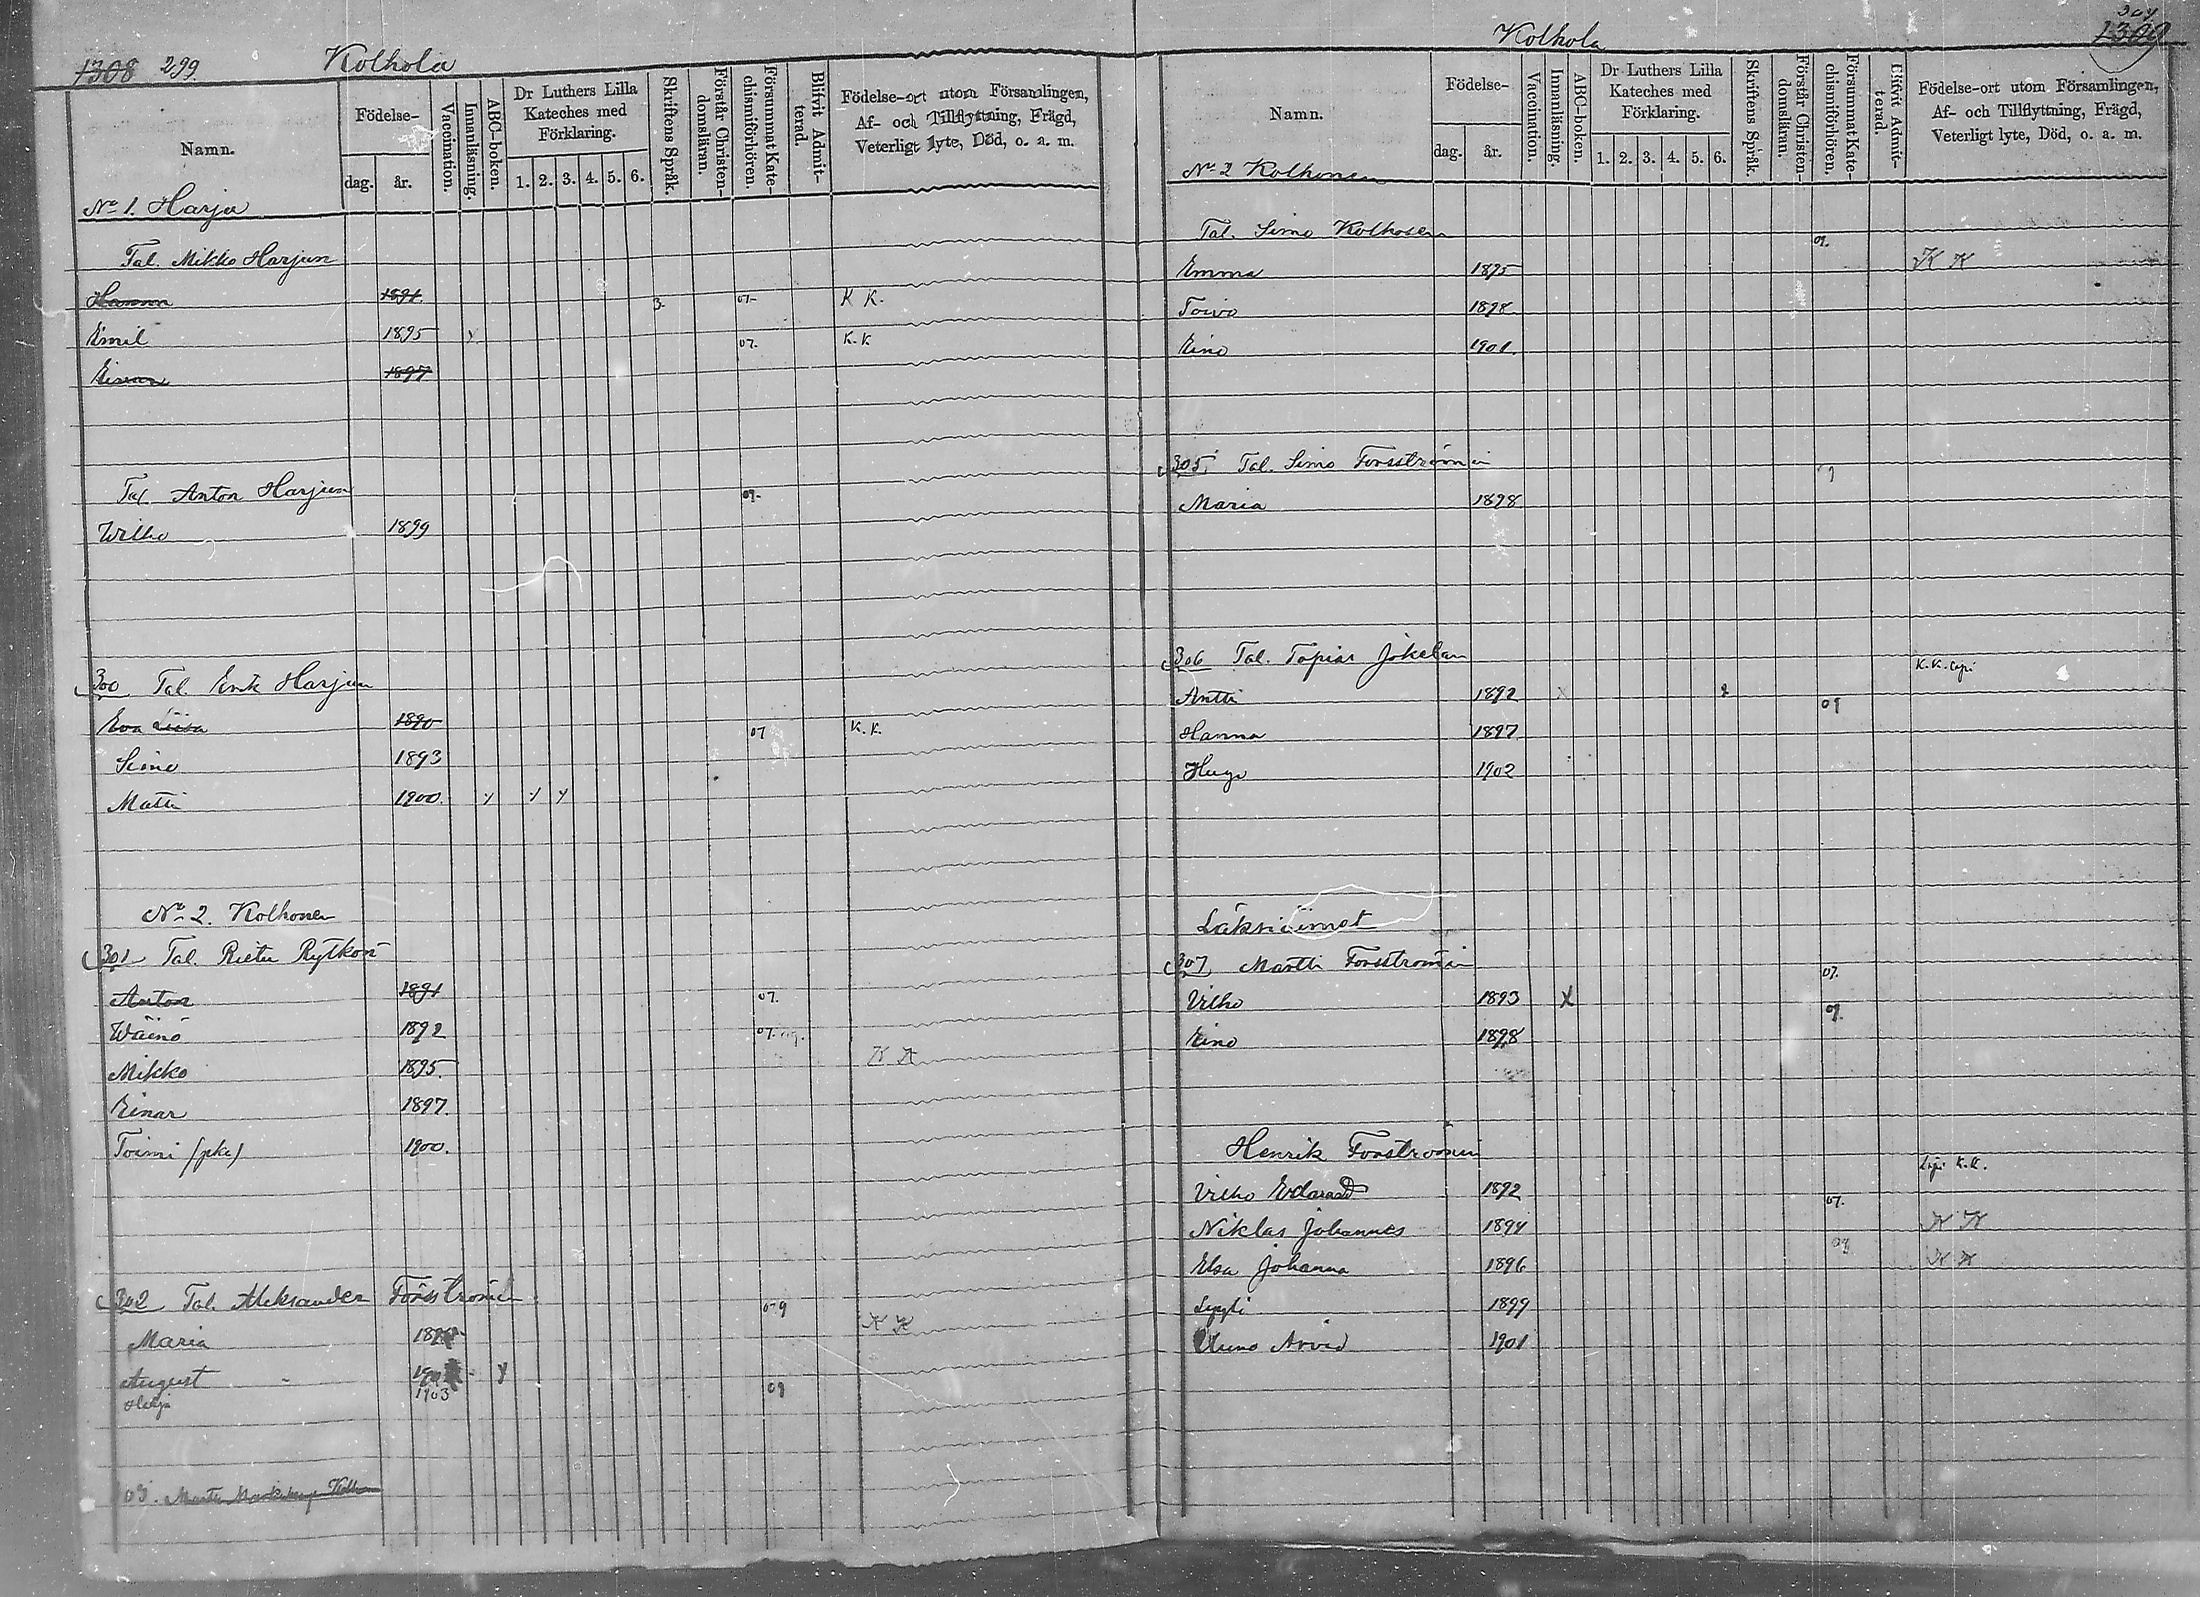 1308 299. Kolhola
Namn.
Födelse-
dag. år.
Vaccination.
Innanläsning.
ABC-boken.
Dr Luthers Lilla Kateches med Förklaring.
1. 2. 3. 4. 5. 6.
Skriftens Språk.
Förstår Christendomsläran.
Försummat Katechismiförhören.
Blifvit Admitterad.
Födelse-ort utom Församlingen, Af- och Tillflyttning, Frägd, Veterligt lyte, Död, o. a. m.
No 1. Harju
Tal. Mikko Harjun
1891 3 07. K K.
Emil 1895 y 07. K. K
1897
Tal Anton Harjun 09.
Wilho 1899
300 Tal. Erik Harjun
Eva Liisa 1890 07 K. K.
Simo 1893
Matti 1900 y y y
No 2. Kolhonen
301 Tal. Rietu Rytkön
Anton 1891 07.
Wäinö 1892 07.
Mikko 1895. K K
Einar 1897.
Toimi 1900.
302 Tal. Aleksander Forsström 09
Maria K K
August y
1903 09
03.
Kolhola
1309
Namn.
Födelse-
dag. år.
Vaccination.
Innanläsning.
ABC-boken.
Dr Luthers Lilla Kateches med Förklaring.
1. 2. 3. 4. 5. 6.
Skriftens Språk.
Förstår Christendomsläran.
Försummat Katechismiförhören.
Blifvit Admitterad.
Födelse-ort utom Församlingen, Af- och Tillflyttning, Frägd, Veterligt lyte, Död, o. a. m.
No 2 Kolhonen
Tal. Simo Kolhosen 09.
Emma 1895 K K
Toivo 1898
Eino 1901.
305 Tal. Simo Forsströmin
Maria 1898
306 Tal. Tapias Jokelan
Antti 1892 x K. K.
Hanna 1897 09
Hugo 1902
307 Martti Forsströmin
Vilho 1893 X 07.
Eino 1898 09.
Henrik Forströmin
Vilho Edvard 1892 K. K.
Niklas Johannes 1894 07. K K
Elsa Johanna 1896 09 K K
Lyyli 1899
Uuno Arvid 1901